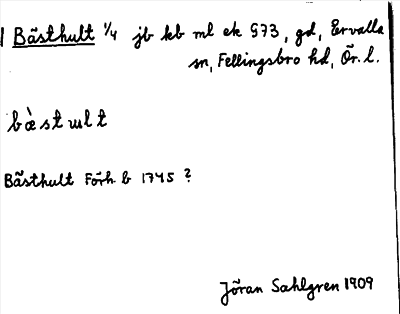 Bästhult ¼ jb kb ml ek § 73, gd, Ervalla
sn, Fellingsbro hd, Ör. l.
bæ̀stɯlt
Bästhult Förh b 1745 ?
Jöran Sahlgren 1909